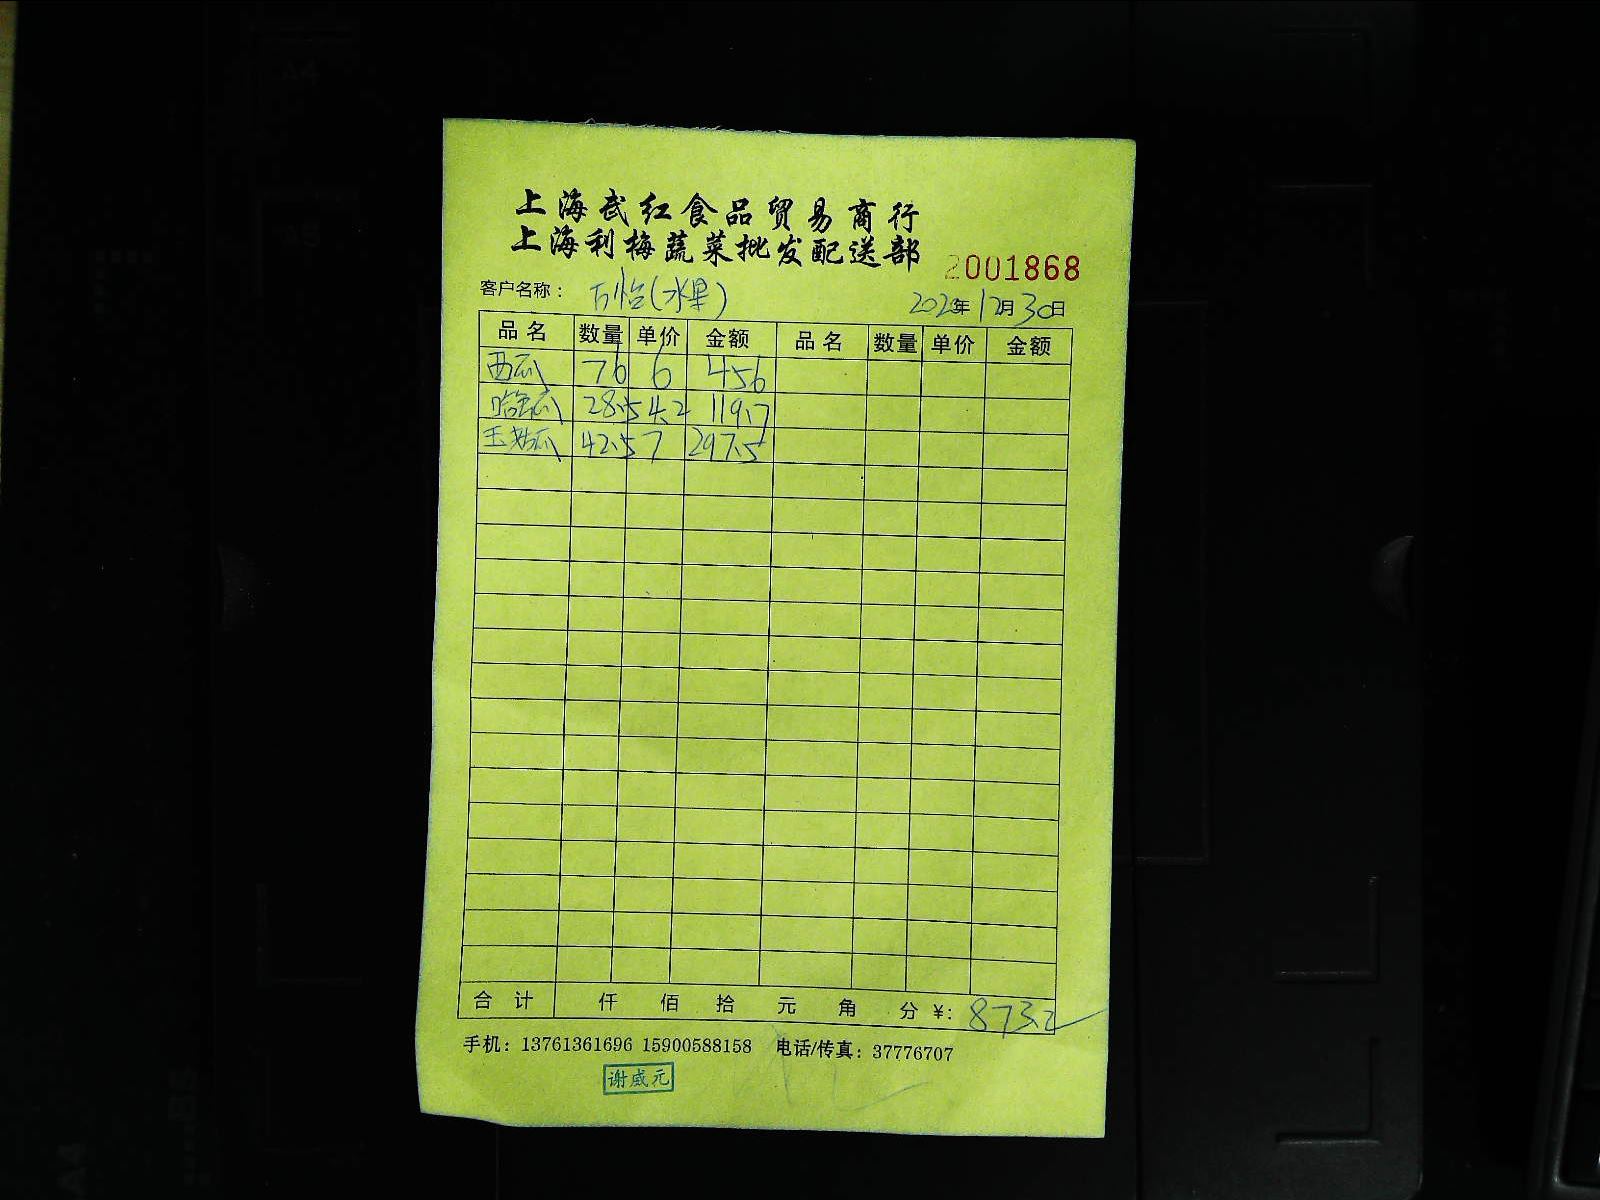 上海武红食品贸易商行
上海利梅蔬菜批发配送部
2001868
客户名称： 万怡(水果) 2020年12月30日
品名 数量 单价 金额 品名 数量 单价 金额
西瓜 76 6 456
哈密瓜 28.5 4.2 119.7
玉菇瓜 42.5 7 297.5
合计 仟 佰 拾 元 角 分 ¥: 873.2
手机：13761361696 15900588158 电话/传真：37776707
谢威元